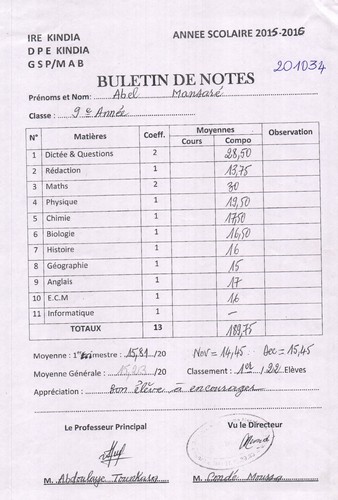 IRE KINDIA
D P E KINDIA
G S P/M A B
ANNEE SCOLAIRE 2015-2016
201034
BULETIN DE NOTES
Prénoms et Nom: Abel Mansaré
Classe : 9e Année
N° Matières Coeff. Moyennes Observation
Cours Compo
1 Dictée & Questions 2 28,50
2 Rédaction 1 13,75
3 Maths 2 30
4 Physique 1 19,50
5 Chimie 1 17,50
6 Biologie 1 16,50
7 Histoire 1 16
8 Géographie 1 15
9 Anglais 1 17
10 E.C.M 1 16
11 Informatique 1 –
TOTAUX 13 189,75
Moyenne : 1er Trimestre : 15,81 /20 Nov = 14,45 Dec = 15,45
Moyenne Générale : /20 Classement : 1er / 22 Elèves
Appréciation : Bon élève à encourager
Le Professeur Principal Vu le Directeur
M. Abdoulaye Tounkara M. Condé Moussa